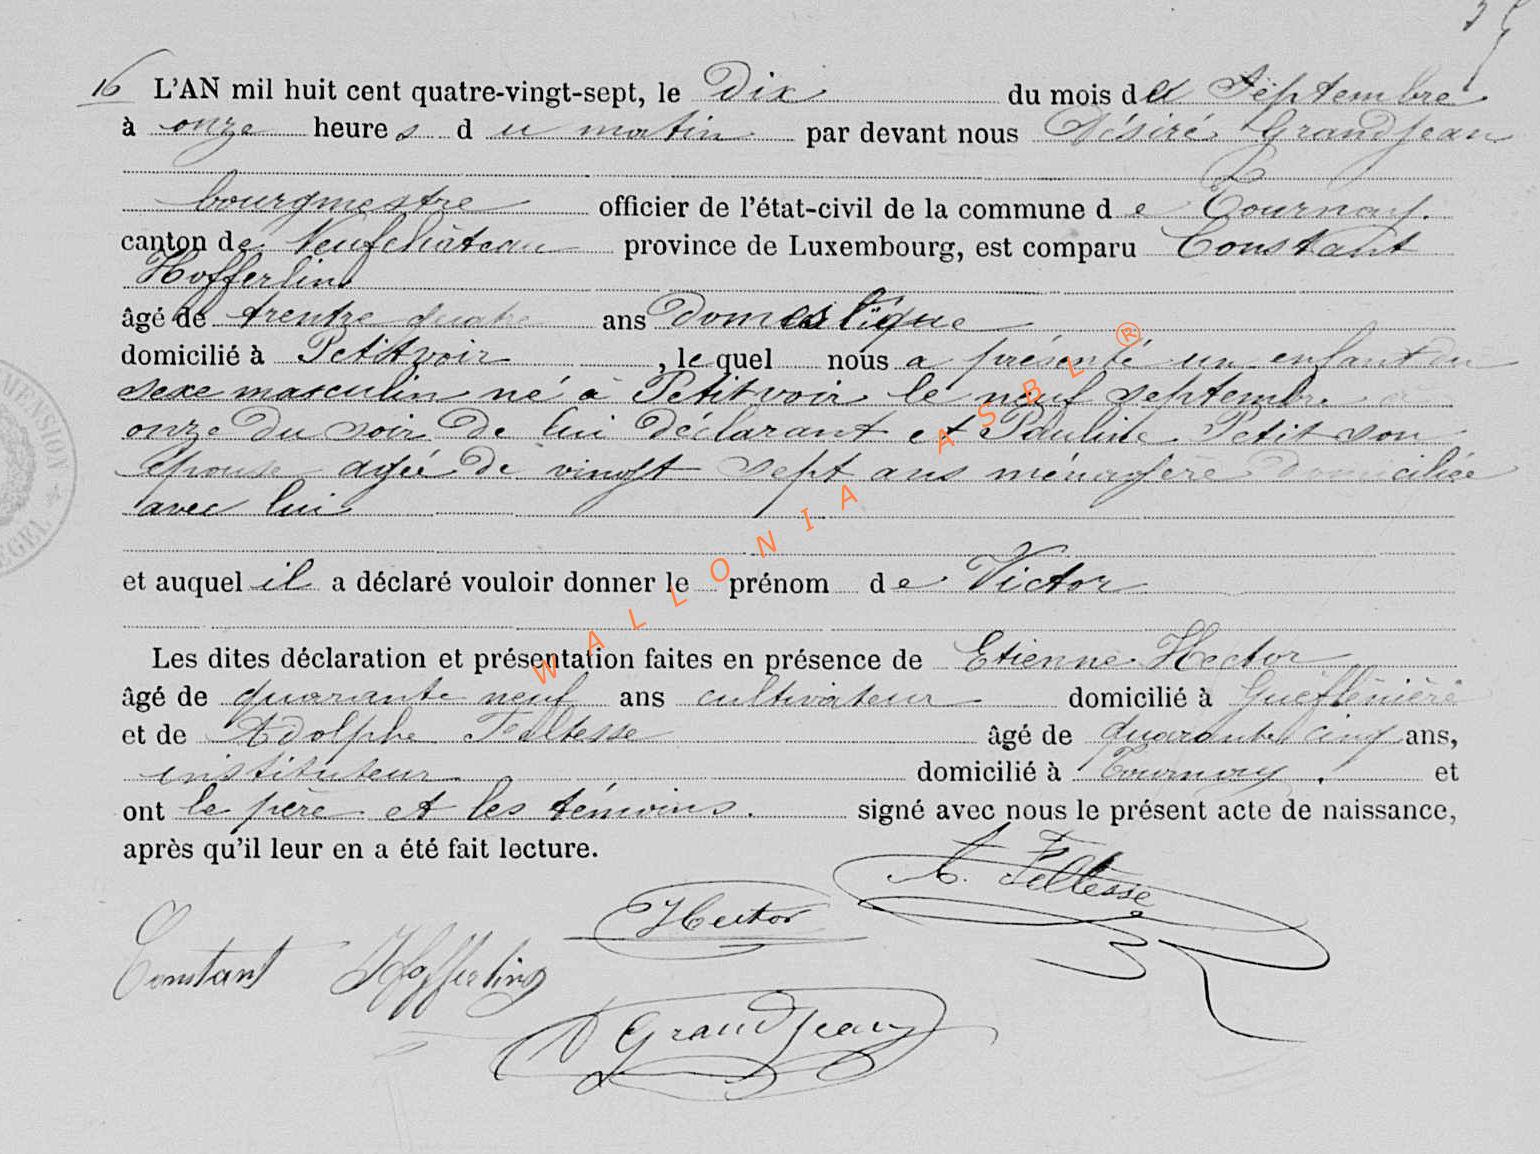 35
16 L'AN mil huit cent quatre-vingt-sept, le Dix du mois de Septembre
à onze heures du matin par devant nous Désiré Grandjean
bourgmestre officier de l'état-civil de la commune de Tournay.
canton de Neufchâteau province de Luxembourg, est comparu Constant
Hofferlin
âgé de trente quatre ans domestique
domicilié à Petitvoir, lequel nous a présenté un enfant du
sexe masculin né à Petitvoir le neuf septembre à
onze du soir De lui Déclarant et Pauline Petit son
épouse agée De vingt sept ans ménagère domiciliée
avec lui
et auquel il a déclaré vouloir donner le prénom de Victor
Les dites déclaration et présentation faites en présence de Etienne Hector
âgé de quarante neuf ans cultivateur domicilié à
et de Adolphe Feltesse âgé de quarante cinq ans,
instituteur domicilié à Tournay. et
ont le père et les témoins. signé avec nous le présent acte de naissance,
après qu'il leur en a été fait lecture.
A. Feltesse
Hector
Constant Hofferlin
D Grandjean
WALLONIA ASBL ®